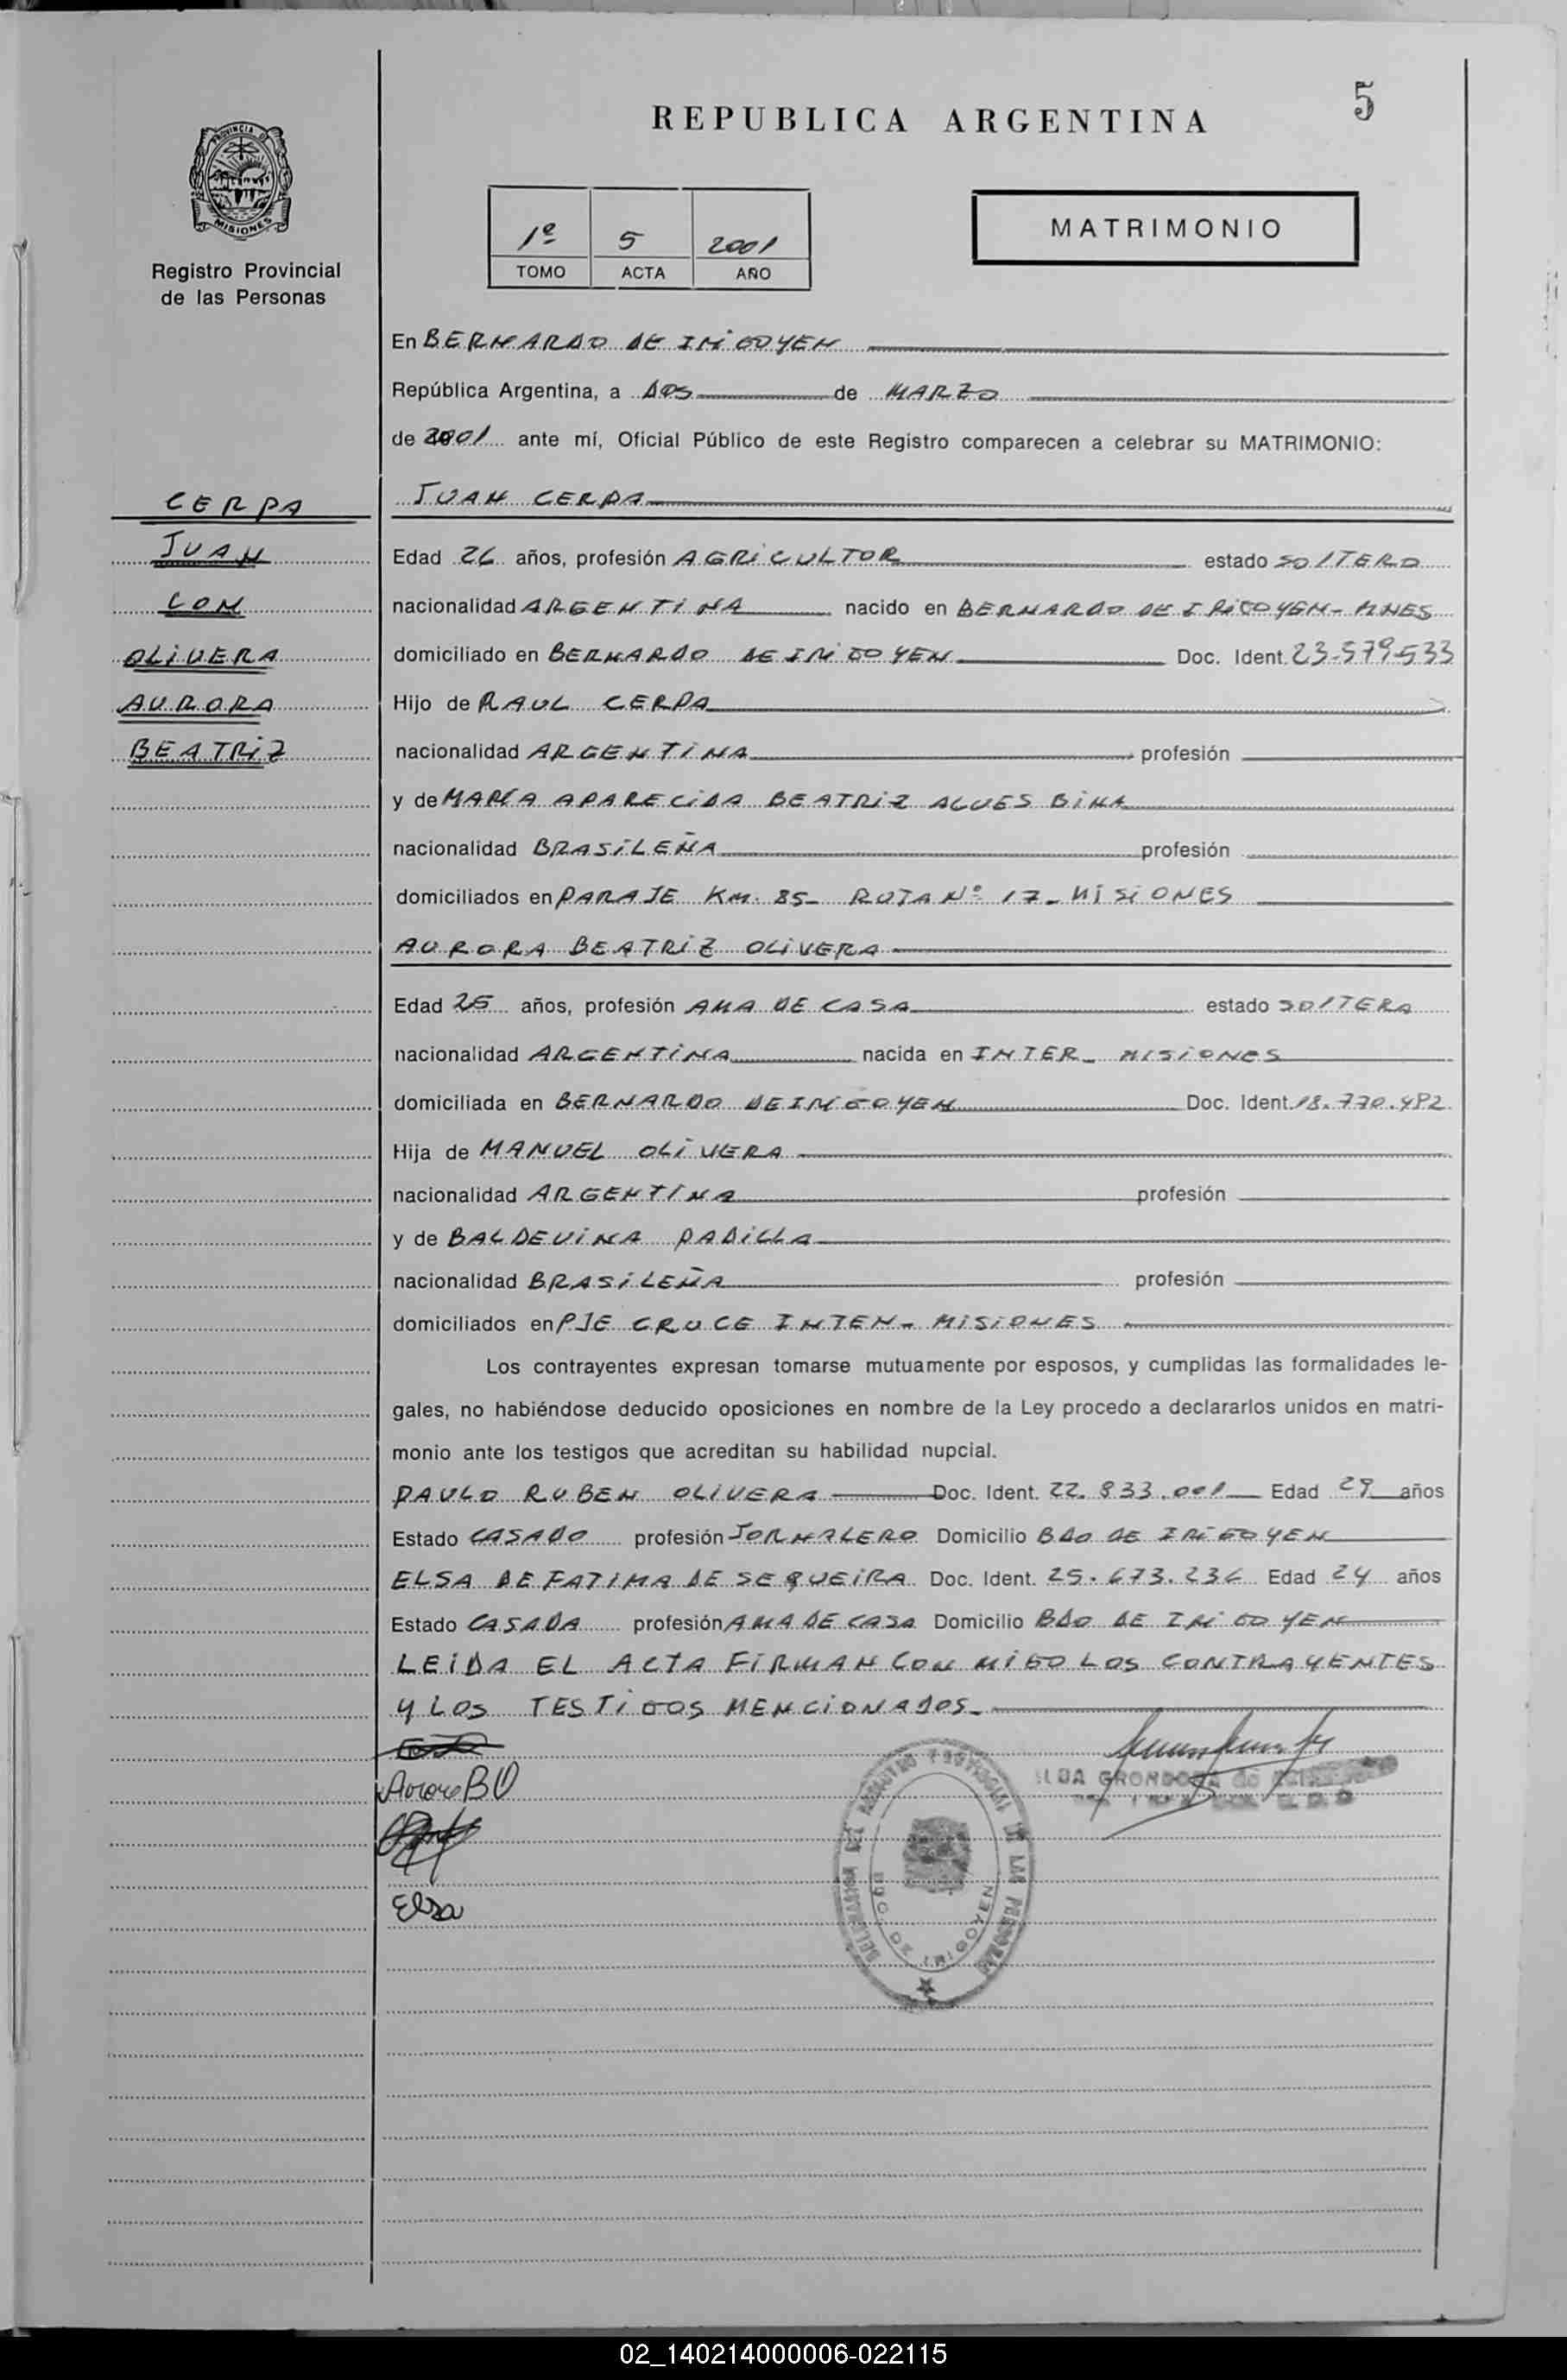 5
REPUBLICA ARGENTINA
PROVINCIA DE
MISIONES
Registro Provincial
de las Personas
1º 5 2001
TOMO ACTA AÑO
MATRIMONIO
En BERNARDO DE IRIGOYEN
República Argentina, a DOS de MARZO
de 2001 ante mí, Oficial Público de este Registro comparecen a celebrar su MATRIMONIO:
CERPA
JUAN
CON
OLIVERA
AURORA
BEATRIZ
JUAN CERPA
Edad 26 años, profesión AGRICULTOR estado SOLTERO
nacionalidad ARGENTINA nacido en BERNARDO DE IRIGOYEN - MNES
domiciliado en BERNARDO DE IRIGOYEN Doc. Ident. 23-579-533
Hijo de RAUL CERPA
nacionalidad ARGENTINA profesión
y de MARÍA APARECIDA BEATRIZ ALVES
nacionalidad BRASILEÑA profesión
domiciliados en PARAJE KM. 85- RUTA Nº 17- MISIONES
AURORA BEATRIZ OLIVERA
Edad 25 años, profesión AMA DE CASA estado SOLTERA
nacionalidad ARGENTINA nacida en INTER- MISIONES
domiciliada en BERNARDO DE IRIGOYEN Doc. Ident. 18.770.482
Hija de MANUEL OLIVERA
nacionalidad ARGENTINA profesión
y de BALDEVINA PADILLA
nacionalidad BRASILEÑA profesión
domiciliados en PJE CRUCE INTER- MISIONES
Los contrayentes expresan tomarse mutuamente por esposos, y cumplidas las formalidades le-
gales, no habiéndose deducido oposiciones en nombre de la Ley procedo a declararlos unidos en matri-
monio ante los testigos que acreditan su habilidad nupcial.
PAULO RUBEN OLIVERA Doc. Ident. 22.833.001 Edad 29 años
Estado CASADO profesión JORNALERO Domicilio BDO DE IRIGOYEN
ELSA DE FATIMA DE SEQUEIRA Doc. Ident. 25.673.236 Edad 24 años
Estado CASADA profesión AMA DE CASA Domicilio BDO DE IRIGOYEN
LEIDA EL ACTA FIRMAN CONMIGO LOS CONTRAYENTES
Y LOS TESTIGOS MENCIONADOS-
Aurora BO
Elsa
GRONDONA de
REGISTRO PROVINCIAL DE LAS PERSONAS
DE IRIGOYEN
02_140214000006-022115